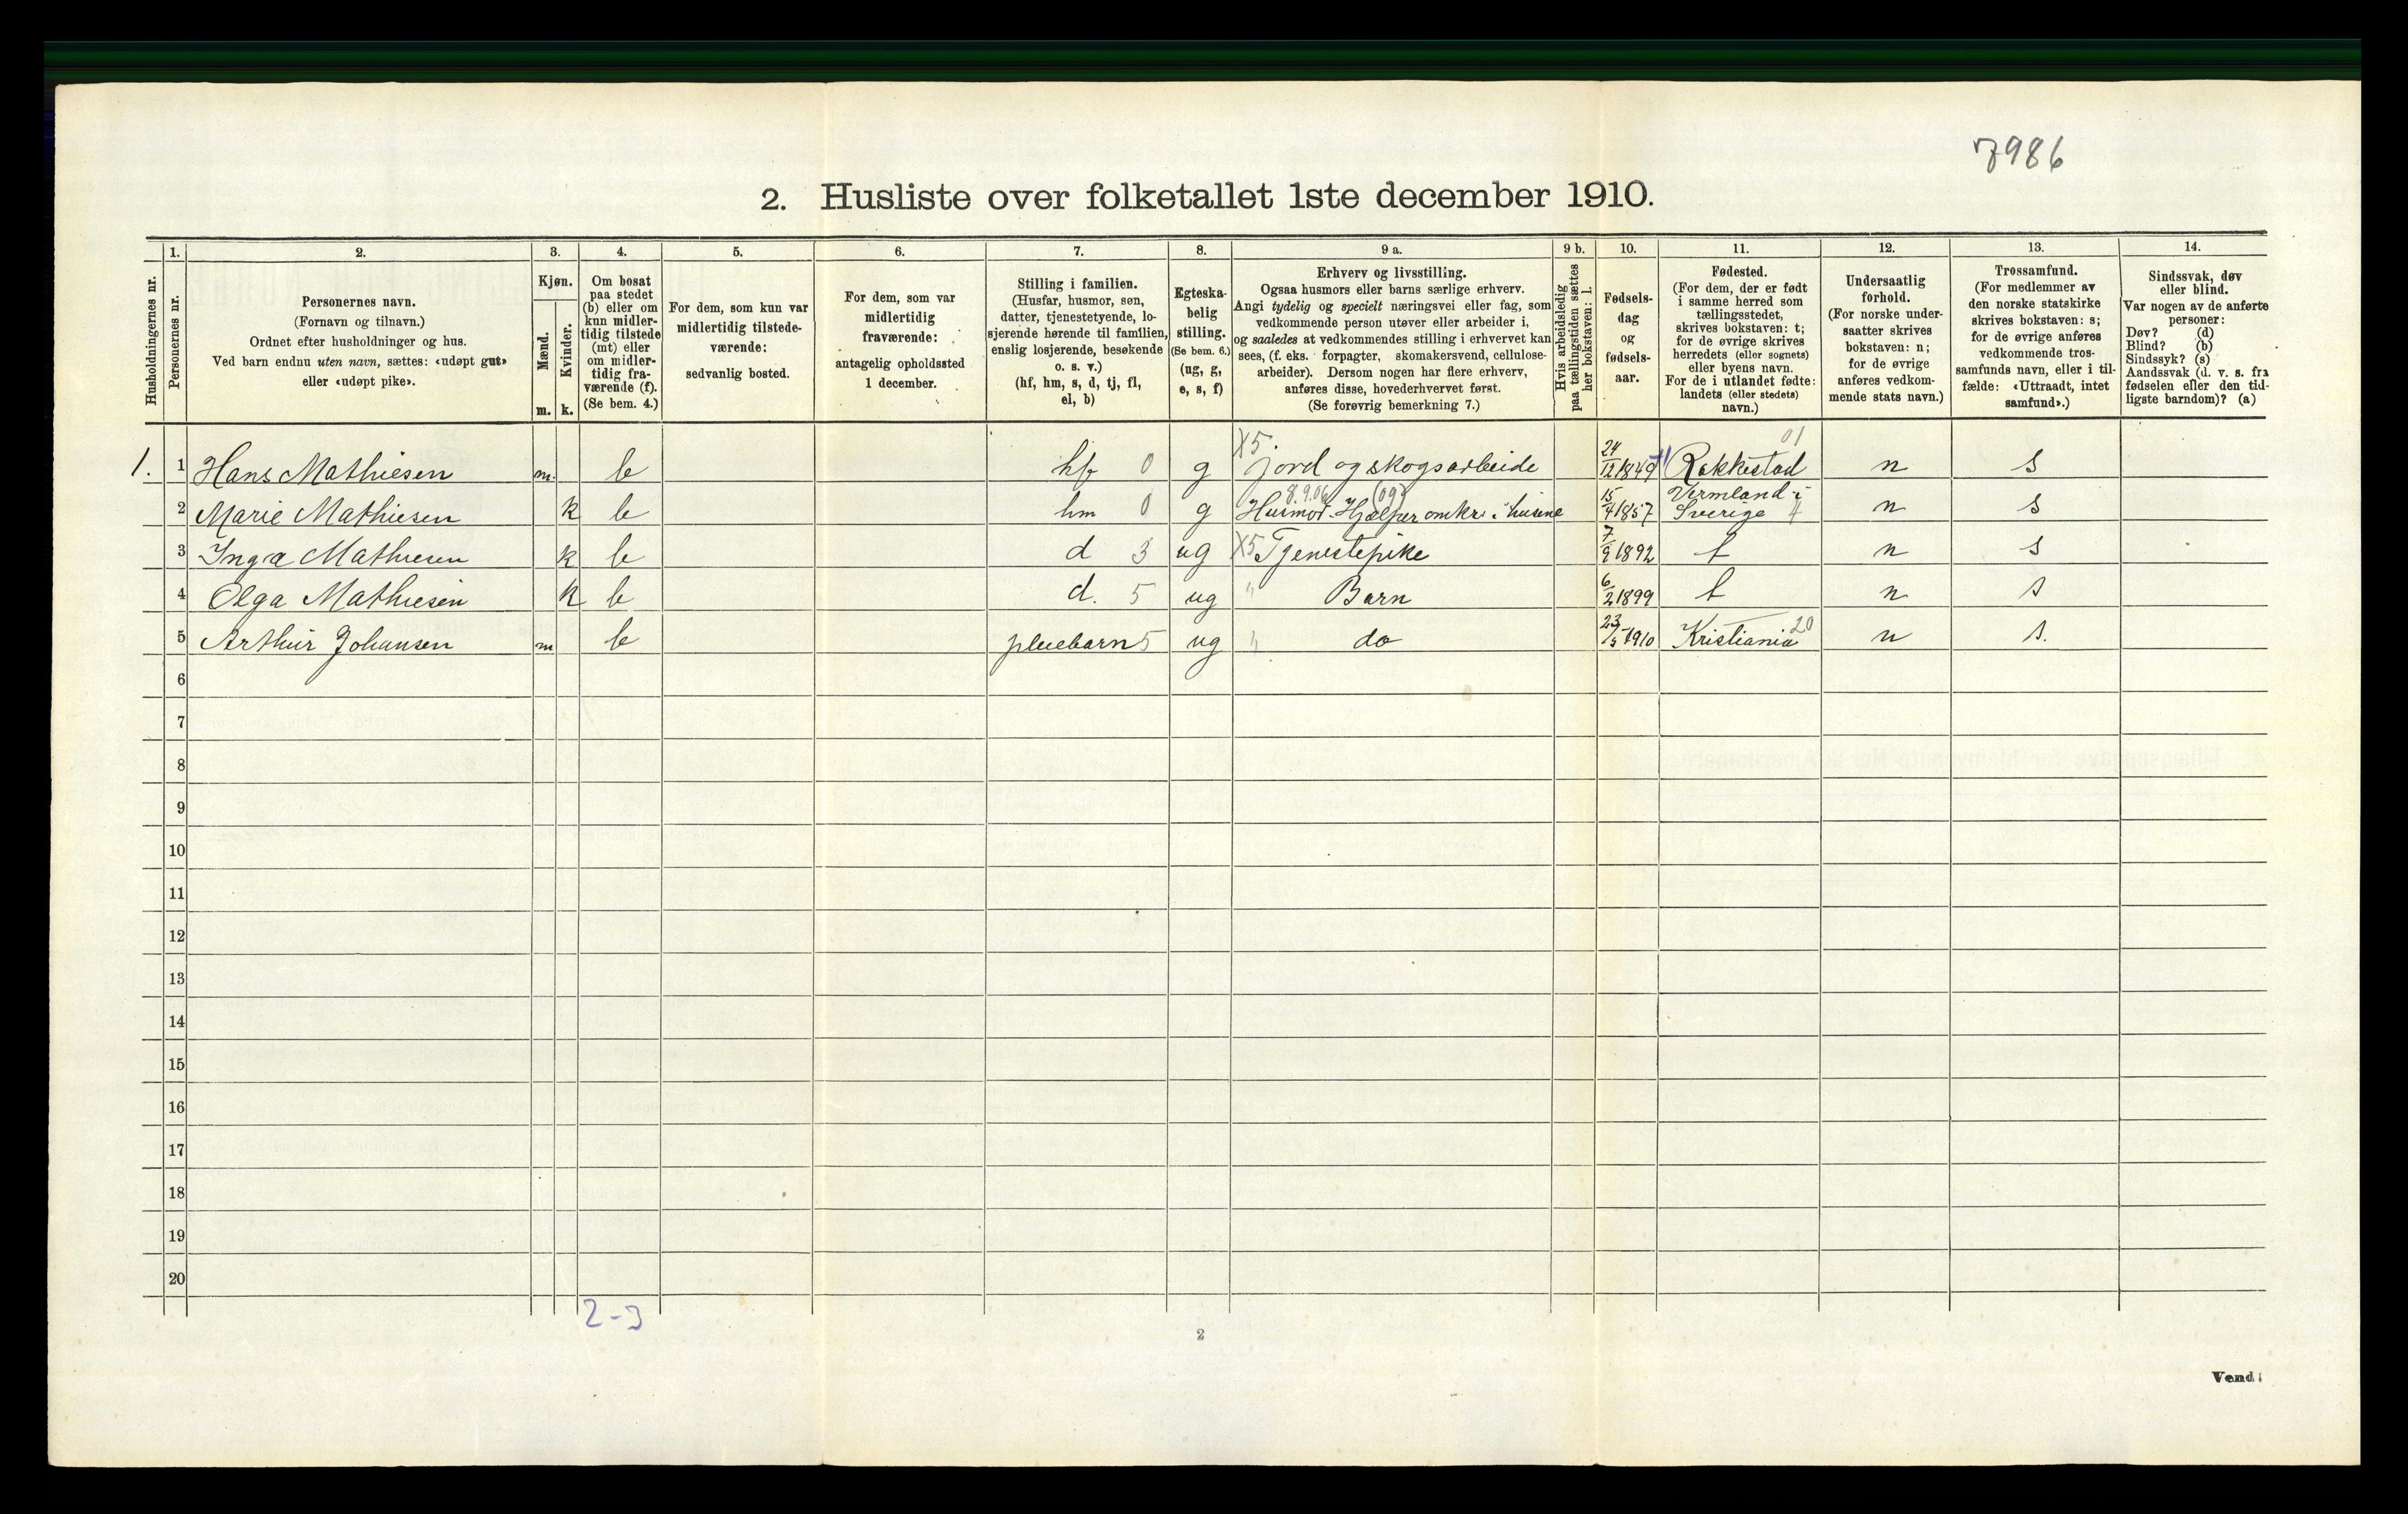 7986
2. Husliste over folketallet 1ste december 1910.
Husholdningernes nr.
1.
Personernes nr.
2.
Personernes navn.
(Fornavn og tilnavn.)
Ordnet efter husholdninger og hus.
Ved barn endnu uten navn, sættes: «udøpt gut»
eller «udøpt pike».
3.
Kjøn.
Mænd.
Kvinder.
m. k.
4.
Om bosat
paa stedet
(b) eller om
kun midler-
tidig tilstede
(mt) eller
om midler-
tidig fra-
værende (f).
(Se bem. 4.)
5.
For dem, som kun var
midlertidig tilstede-
værende:
sedvanlig bosted.
6.
For dem, som var
midlertidig
fraværende:
antagelig opholdssted
1 december.
7.
Stilling i familien.
(Husfar, husmor, søn,
datter, tjenestetyende, lo-
sjerende hørende til familien,
enslig losjerende, besøkende
o. s. v.)
(hf, hm, s, d, tj, fl,
el, b)
8.
Egteska-
belig
stilling.
(Se bem. 6.)
(ug, g,
e, s, f)
9 a.
Erhverv og livsstilling.
Ogsaa husmors eller barns særlige erhverv.
Angi tydelig og specielt næringsvei eller fag, som
vedkommende person utøver eller arbeider i,
og saaledes at vedkommendes stilling i erhvervet kan
sees, (f. eks. forpagter, skomakersvend, cellulose-
arbeider). Dersom nogen har flere erhverv,
anføres disse, hovederhvervet først.
(Se forøvrig bemerkning 7.)
9 b.
Hvis arbeidsledig
paa tællingstiden sættes
her bokstaven: l.
10.
Fødsels-
dag
og
fødsels-
aar.
11.
Fødested.
(For dem, der er født
i samme herred som
tællingsstedet,
skrives bokstaven: t;
for de øvrige skrives
herredets (eller sognets)
eller byens navn.
For de i utlandet fødte:
landets (eller stedets)
navn.)
12.
Undersaatlig
forhold.
(For norske under-
saatter skrives
bokstaven: n;
for de øvrige
anføres vedkom-
mende stats navn.)
13.
Trossamfund.
(For medlemmer av
den norske statskirke
skrives bokstaven: s;
for de øvrige anføres
vedkommende tros-
samfunds navn, eller i til-
fælde: «Uttraadt, intet
samfund».)
14.
Sindssvak, døv
eller blind.
Var nogen av de anførte
personer:
Døv? (d)
Blind? (b)
Sindssyk? (s)
Aandssvak (d. v. s. fra
fødselen eller den tid-
ligste barndom)? (a)
X5 01
1. 1 Hans Mathiesen m. b hf 0 g jord og skogsarbeide 24/12 1849 Rakkestad n s
8.9.06 (09) Vermland i
2 Marie Mathiesen k b hm 0 g Husmor Hjælper omkr i husene 15/4 1857 Sverige 4 n s
3 Inga Mathiesen k b d 3 ug X5 Tjenestepike 7/9 1892 t n s
4 Olga Mathiesen k b d. 5 ug " Barn 6/2 1899 t n s
5 Arthur Johansen m b pleiebarn 5 ug " do 23/5 1910 Kristiania 20 n s.
6
7
8
9
10
11
12
13
14
15
16
17
18
19
20
2-3
2
Vend!